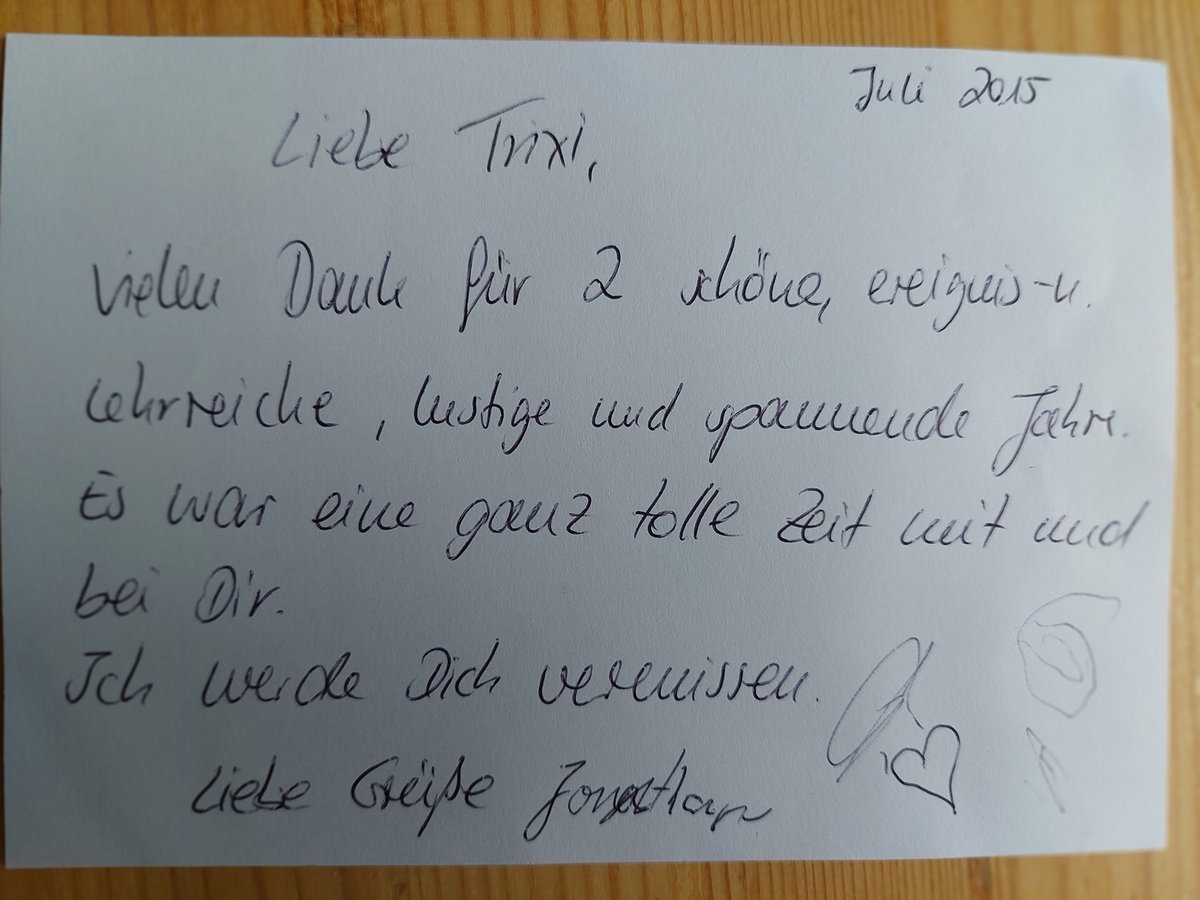 Juli 2015
Liebe Trixi,
vielen Dank für 2 schöne, ereignis-u.
lehrreiche, lustige und spannende Jahre.
Es war eine ganz tolle Zeit mit und
bei Dir.
Ich werde Dich vermissen.
Liebe Grüße Jonathan